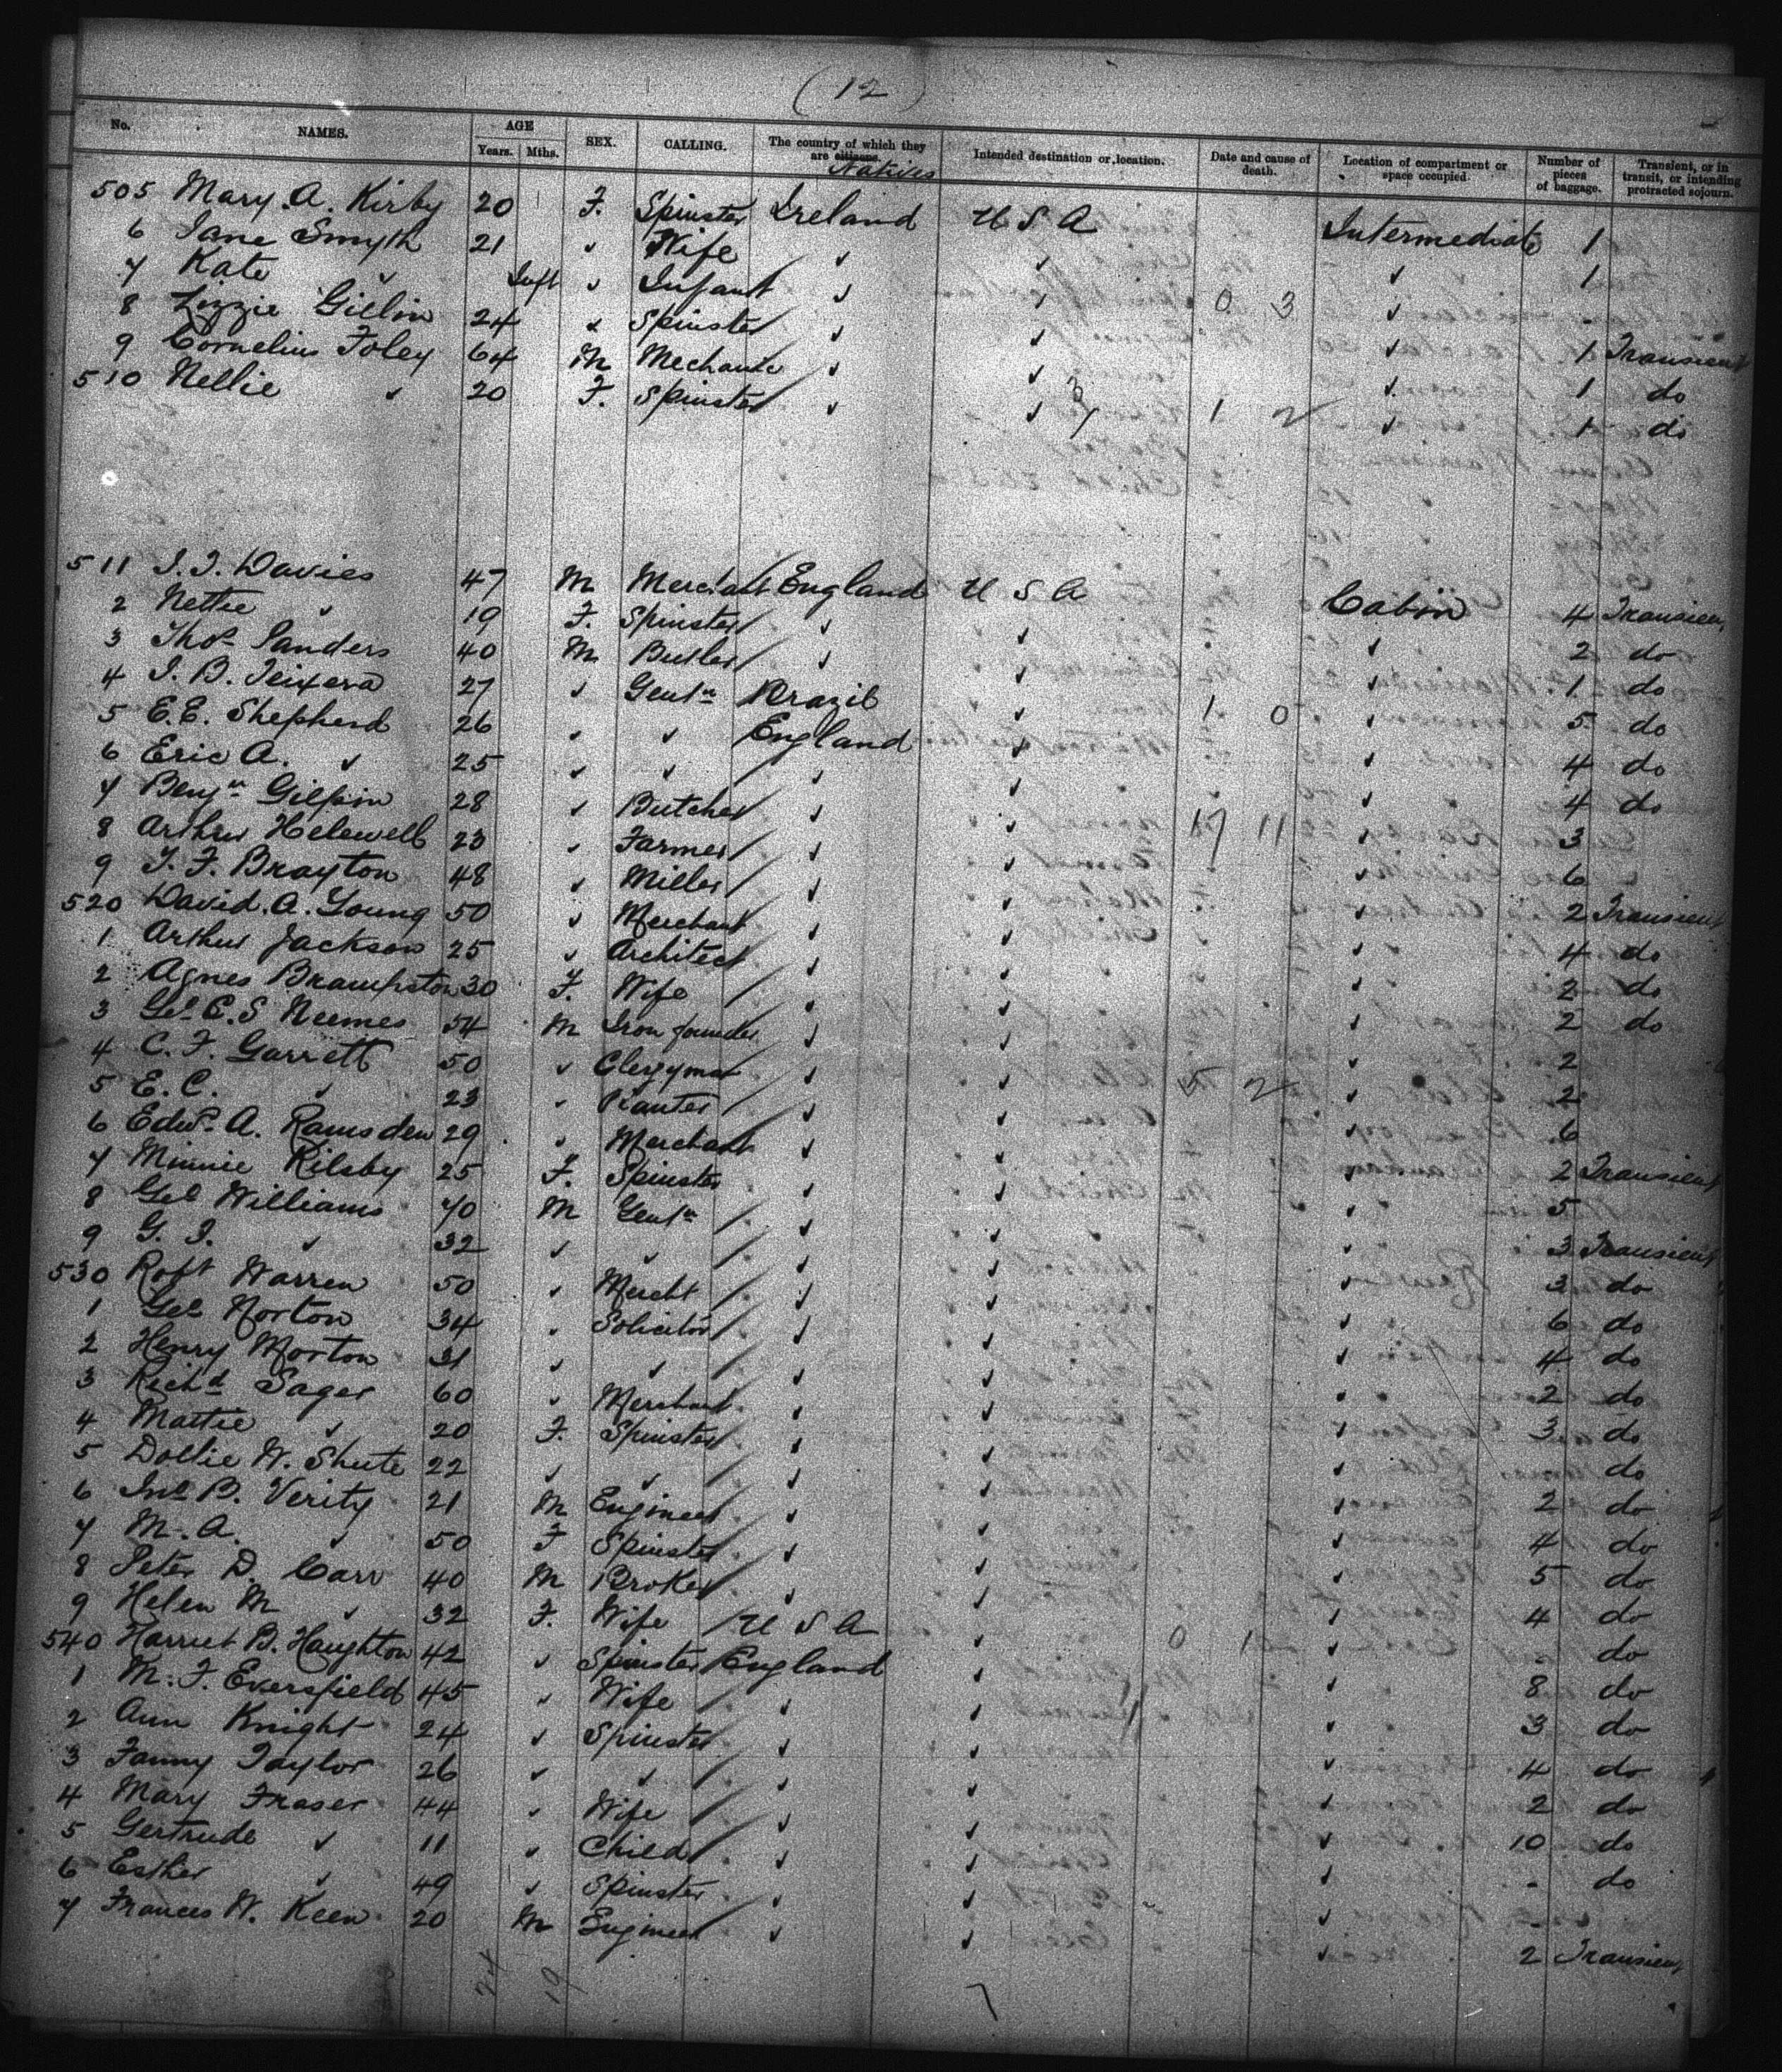 ( 12 )
No. NAMES. AGE Years. Mths. SEX. CALLING. The country of which they are citizens. Natives Intended destination or location. Date and cause of death. Location of compartment or space occupied. Number of pieces of baggage. Transient, or in transit, or intending protracted sojourn.
505 Mary. A. Kirby 20 F. Spinster Ireland U S A Intermediate 1
6 Jane Smyth 21 ✓ Wife ✓ ✓ ✓ 1
7 Kate ✓ Inft ✓ Infant ✓ ✓ 0 3 ✓ -
8 Lizzie Gillin 24 ✓ Spinster ✓ ✓ ✓ 1 Transient
9 Cornelius Foley 64 M Mechanic ✓ ✓ ✓ 1 do
510 Nellie ✓ 20 F. Spinster ✓ ✓ 3/ 1 2 ✓ 1 do
511 J. J. Davies 47 M Merchant England U S A Cabin 4 Transient
2 Nettie ✓ 19 F. Spinster ✓ ✓ ✓ 2 do
3 Thos Sanders 40 M Butler ✓ ✓ ✓ 1 do
4 J. B. Teixera 27 ✓ Gentn Brazil ✓ 1 0 ✓ 5 do
5 E. E. Shepherd 26 ✓ ✓ England ✓ ✓ 4 do
6 Eric A. ✓ 25 ✓ ✓ ✓ ✓ ✓ 4 do
7 Benjn Gilpin 28 ✓ Butcher ✓ ✓ 17 11 ✓ 3
8 Arthur Helewell 23 ✓ Farmer ✓ ✓ ✓ 6
9 T. F. Brayton 48 ✓ Miller ✓ ✓ ✓ 2 Transient
520 David. A. Young 50 ✓ Merchant ✓ ✓ ✓ 4 do
1 Arthur Jackson 25 ✓ Architect ✓ ✓ ✓ 2 do
2 Agnes Brampston 30 F. Wife ✓ ✓ ✓ 2 do
3 Geo E. S Neemes 54 M Iron founder ✓ ✓ ✓ 2
4 C. F. Garrett 50 ✓ Clergyman ✓ ✓ 5 2 ✓ 2
5 E. C. ✓ 23 ✓ Planter ✓ ✓ ✓ 6
6 Edwd A. Ramsden 29 ✓ Merchant ✓ ✓ ✓ 2 Transient
7 Minnie Kilsby 25 F. Spinster ✓ ✓ ✓ 5
8 Geo Williams 40 M Gentn ✓ ✓ ✓ 3 Transient
9 G. J. ✓ 32 ✓ ✓ ✓ ✓ ✓ 3 do
530 Robt Warren 50 ✓ Mercht ✓ ✓ ✓ 6 do
1 Geo Norton 34 ✓ Solicitor ✓ ✓ ✓ 4 do
2 Henry Morton 31 ✓ ✓ ✓ ✓ ✓ 2 do
3 Richd Sager 60 ✓ Merchant ✓ ✓ ✓ 3 do
4 Mattie ✓ 20 F. Spinster ✓ ✓ ✓ do
5 Dollie W. Shute 22 ✓ ✓ ✓ ✓ ✓ 2 do
6 Jno B. Verity 21 M Engineer ✓ ✓ ✓ 4 do
7 M. A. ✓ 50 F Spinster ✓ ✓ ✓ 5 do
8 Peter D. Carr 40 M Broker ✓ ✓ ✓ 4 do
9 Helen M ✓ 32 F. Wife U S A ✓ 0 1 ✓ - do
540 Harriet B. Haughton 42 ✓ Spinster England ✓ ✓ 8 do
1 M. F. Eversfield 45 ✓ Wife ✓ ✓ ✓ 3 do
2 Ann Knight 24 ✓ Spinster ✓ ✓ ✓ 4 do
3 Fanny Taylor 26 ✓ ✓ ✓ ✓ ✓ 2 do
4 Mary Fraser 44 ✓ Wife ✓ ✓ ✓ 10 do
5 Gertrude ✓ 11 ✓ Child ✓ ✓ ✓ - do
6 Esther ✓ 49 ✓ Spinster ✓ ✓ ✓ -
7 Frances W. Keen 20 M Engineer ✓ ✓ ✓ 2 Transient
24 19